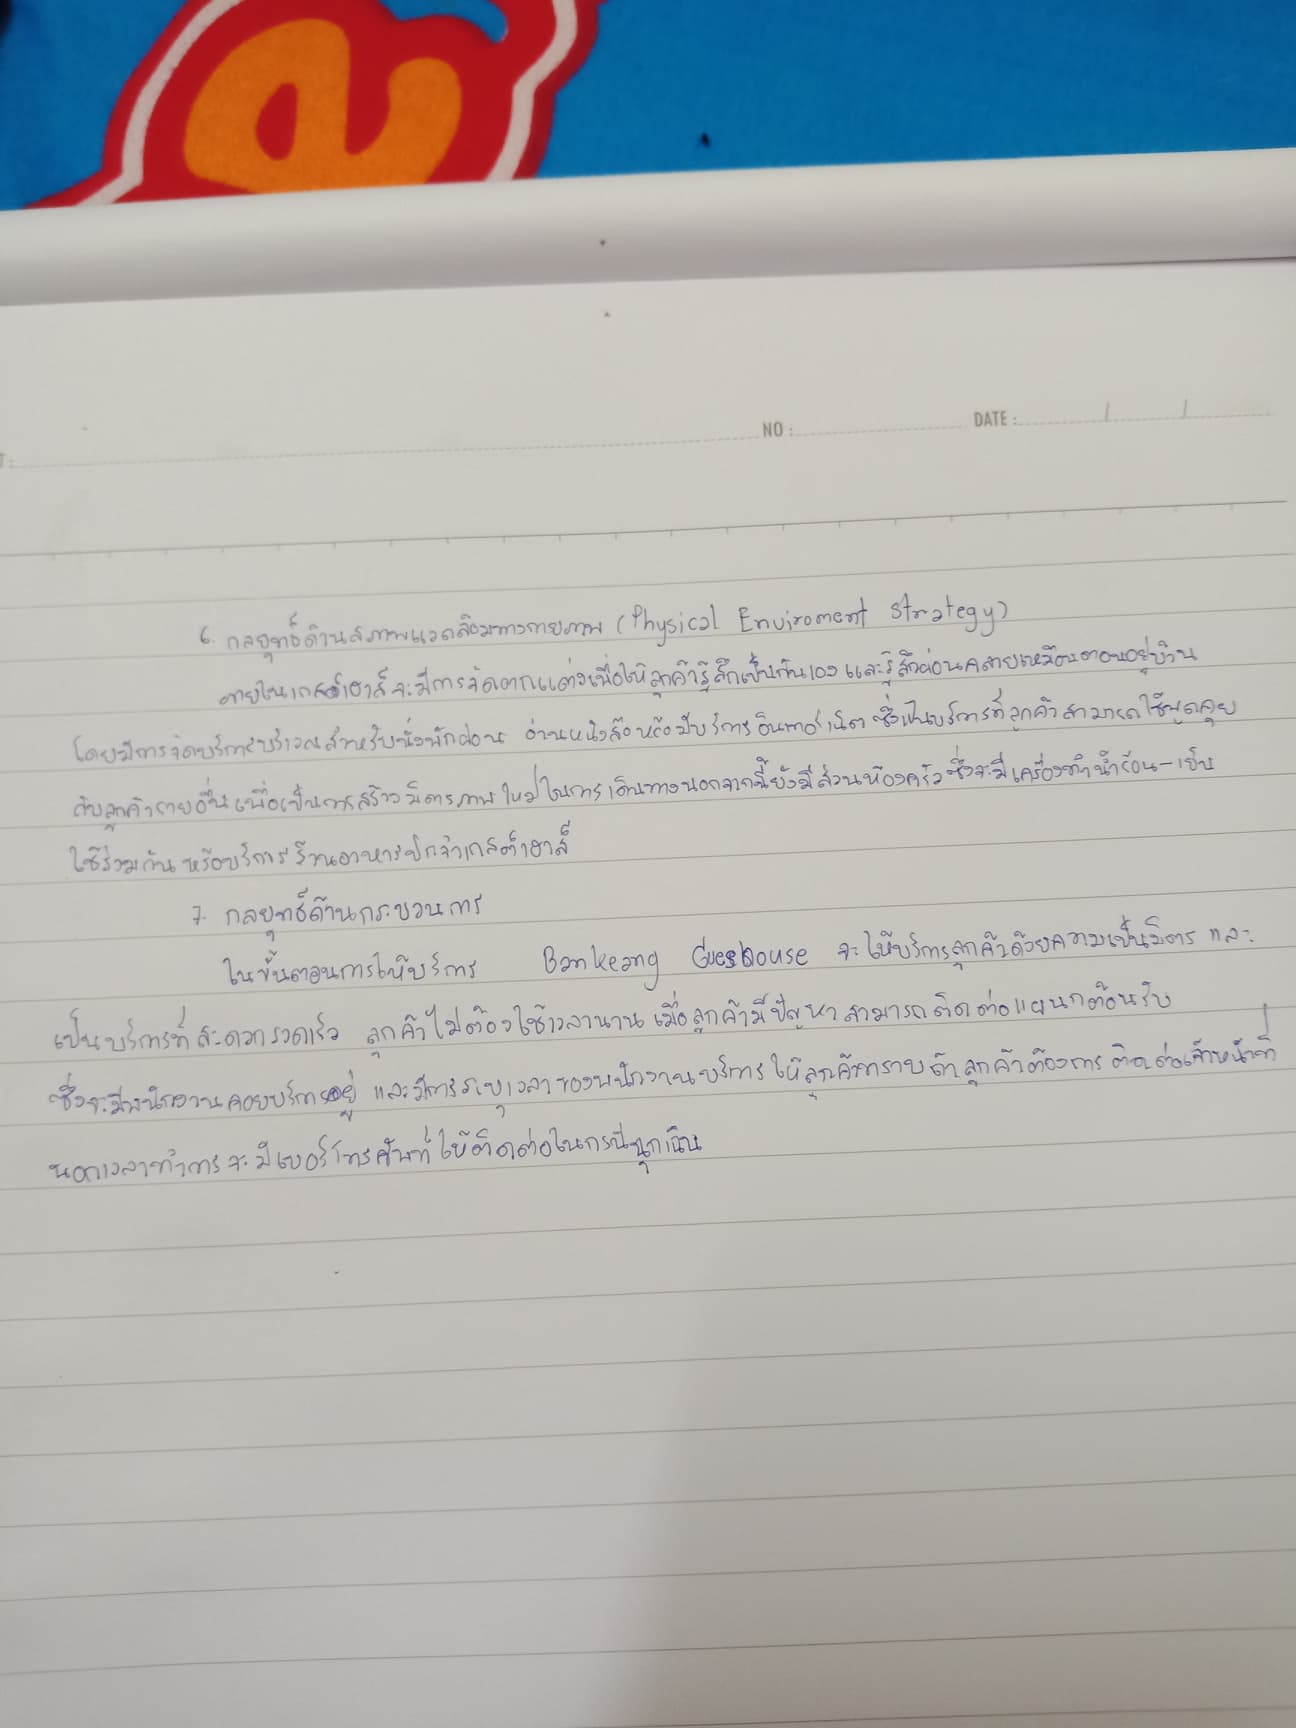 NO : DATE : / /
6. กลยุทธ์ด้านสภาพแวดล้อมทางกายภาพ (Physical Enviroment Strategy)
ภายในเกสต์เฮาส์จะมีการจัดตกแต่งเพื่อให้ลูกค้ารู้สึกเป็นกันเอง และรู้สึกผ่อนคลายเหมือนตอนอยู่บ้าน
โดยมีการจัดบริการบริเวณสำหรับนั่งพักผ่อน อ่านหนังสือหรือมีบริการอินเทอร์เน็ต ซึ่งเป็นบริการที่ลูกค้าสามารถใช้พูดคุย
กับลูกค้ารายอื่นเพื่อเป็นการสร้างมิตรภาพใหม่ในการเดินทางนอกจากนี้ยังมีส่วนห้องครัวซึ่งจะมีเครื่องทำน้ำร้อน-เย็น
ใช้ร่วมกัน หรือบริการร้านอาหารปิกจำเกสต์เฮาส์
7. กลยุทธ์ด้านกระบวนการ
ในขั้นตอนการให้บริการ Bankeang Guesthouse จะให้บริการลูกค้าด้วยความเป็นมิตร และ
เป็นบริการที่สะดวกรวดเร็ว ลูกค้าไม่ต้องใช้เวลานาน เมื่อลูกค้ามีปัญหาสามารถติดต่อแผนกต้อนรับ
ซึ่งจะมีพนักงานคอยบริการอยู่ และมีการระบุเวลาของพนักงานบริการให้ลูกค้าทราบถ้าลูกค้าต้องการติดต่อเจ้าหน้าที่
นอกเวลาทำการจะมีเบอร์โทรศัพท์ให้ติดต่อในกรณีฉุกเฉิน